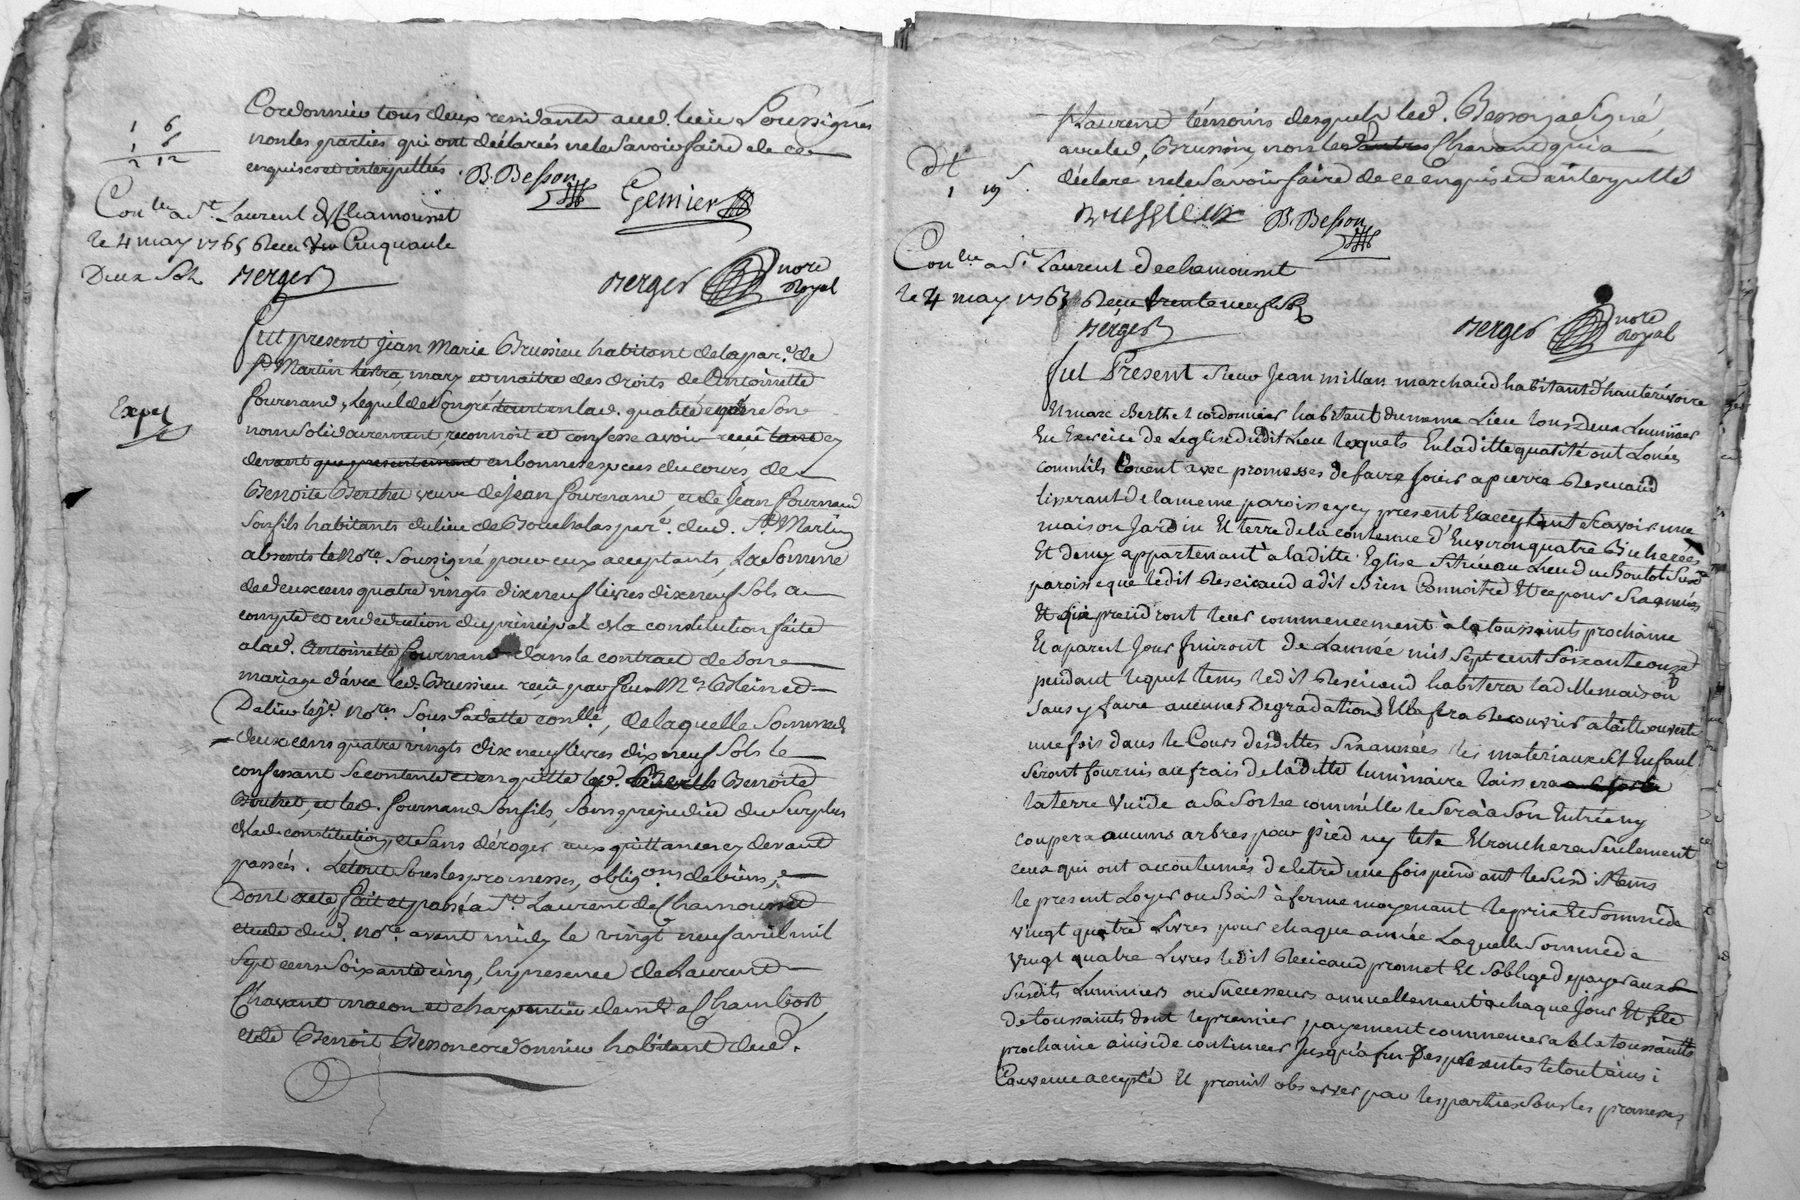 Cordonnier tous deux residants aud. lieu Soussignés
non les parties qui ont déclarés ne le Savoir faire de ce
enquises et interpellés. B. Besson Gemier
1 6
1 6
2 12
Con.lle a St. Laurent de Chamousset
le 4 may 1765 Receu Cinquante
Deux Sols Berger
Berger nore Royal
Fut present Jean Marie Brussieu habitant de la par.e de
St Martin lestra, mary et maitre des droits de Antoinette
Expé
Fournand, Lequel de Son gré tant en lad. qualité que en Son
nom Solidairement reconnoit et confesse avoir receu tant cy
devant que presentement en bonnes especes du cours, de
Benoite Berthet veuve de Jean Fournand, et de Jean Fournand
Son fils habitants du lieu de Bouchalas par.e dud. St. Martin
absents le No.re Soussigné pour eux acceptants, La Somme
de deux cens quatre vingts dix neuf livres dix neuf Sols a
compte et en deduction du principal de la constitution faite
a lad. Antoinette Fournand dans le contract de Son
mariage d'avec led. Brussieu receu par feu M.e et
Dalieu le j.e No.res Sous Sa datte conllé, de laquelle Somme de
deux cens quatre vingts dix neuf livres dix neuf Sols le
confessant Se contente et en quitte lad. Benoite
Berthet, et led. Fournand Son fils, Sans prejudice du Surplus
de lad. constitution, et Sans déroger aux quittances cy devant
passés. Le tout Sous les promesses, oblig.ons de biens, &
Dont acte Fait et passé a St. Laurent de Chamousset
etude dud. No.re avant midy le vingt neuf avril mil
Sept cens Soixante cinq, En presence de Laurent
Chavant macon et charpentier demt a Chambost,
et de Benoit Besson cordonnier habitant dud.
St Laurent témoins desquels led. Besson a Signé
avec led. Brussieu, non led. Chavant qui a
déclaré ne le Savoir faire de ce enquis et interpellé
dt
1 19 s.
Brussieux B. Besson
Con.lle a St. Laurent de chamousset
le 4 may 1765 Receu trente neuf Sols
Berger
Berger nore Royal
Fut Present Sieur Jean millan marchand habitant d'hauterivoire
Et marc Berthet cordonnier habitant du meme Lieu tous deux Luminiers
En Exercice de Leglise dudit Lieu lesquels En laditte qualité ont Loués
comm'ils Louent avec promesses de faire Jouir a pierre Rescicaud
tisserant de la meme paroisse cy present Et acceptant Scavoir une
maison Jardin Et terre de la contenue d'Environ quatre Bicherées
Et demy appartenant à laditte Eglise Situé au Lieu du Boulot Susd.
paroisse que ledit Rescicaud a dit Bien Connoitre Et ce pour Six années
Et qui prendront leur commencement à la toussaints prochaine
Et a pareil Jour finiront de Lannée mil Sept cent Soixante onze
pendant lequel tems ledit Rescicaud habitera laditte maison
Sans y faire aucunes Degradations Et la fera Recouvrir a taille ouverte
une fois dans le Cours desdittes Six années les materiaux S'il En faut
Seront fournis au frais de laditte luminaire laissera
la terre Vuide a Sa Sortie comm'elle le Serà à Son Entrée ny
coupera aucuns arbres pour pied ny tete Et rouchera Seulement
ceux qui ont accoutumés de letre une fois pendant le Susdit tems
le present Loyer ou Bail à ferme moyenant le prix Et Somme de
vingt quatre Livres pour chaque année Laquelle Somme de
vingt quatre Livres ledit Rescicaud promet Et Soblige de payer aux
Susdits Luminiers ou Successeurs annuellement à chaque Jour Et fete
de toussaints dont le premier payement commencera à la toussaints
prochaine ainsi de continuer Jusqu'a fin Des presentes le tout ainsi
Convenu accepté Et promit observer par les parties Sous les promesses